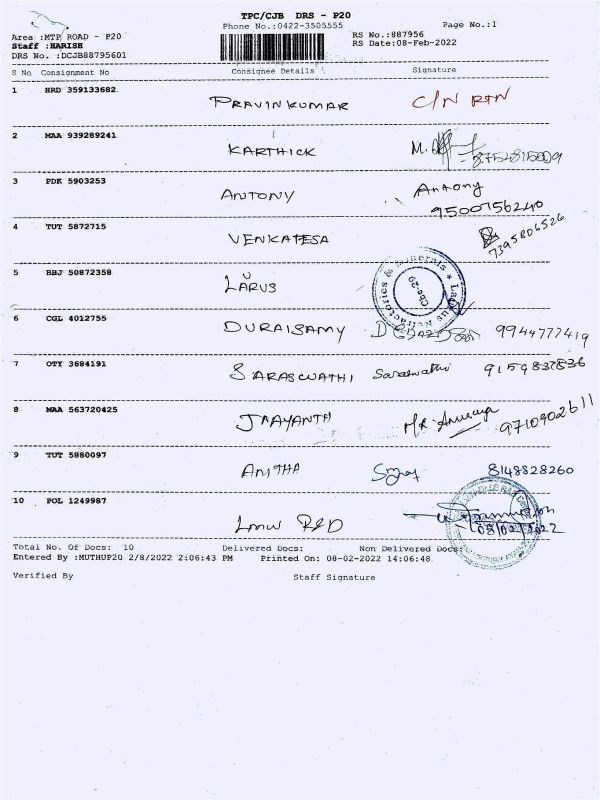 TPC/CJB DRS - P20
Phone No.:0422-3505555 Page No.:1
Area :MTP ROAD - P20 RS No.:887956
Staff :HARISH RS Date:08-Feb-2022
DRS No. :DCJB88795601
S No Consignment No Consignee Details Signature
1 HRD 359133682
PRAVINKUMAR C/N RTN
2 MAA 939289241
KARTHICK
3 PDK 5903253
ANTONY Antony
9500756240
4 TUT 5872715
VENKATESA 7395806526
5 BBJ 50872358
LARUS
6 CGL 4012755
DURAISAMY 9944777419
7 OTY 3684191
SARASWATHI Saraswathi 9159837836
8 MAA 563720425
JAAYANTH 9710902611
9 TUT 5880097
ANITHA 8148828260
10 POL 1249987
LMW R&D 08/02/2022
Total No. Of Docs: 10 Delivered Docs: Non Delivered Docs:
Entered By :MUTHUP20 2/8/2022 2:06:43 PM Printed On: 08-02-2022 14:06:48
Verified By Staff Signature